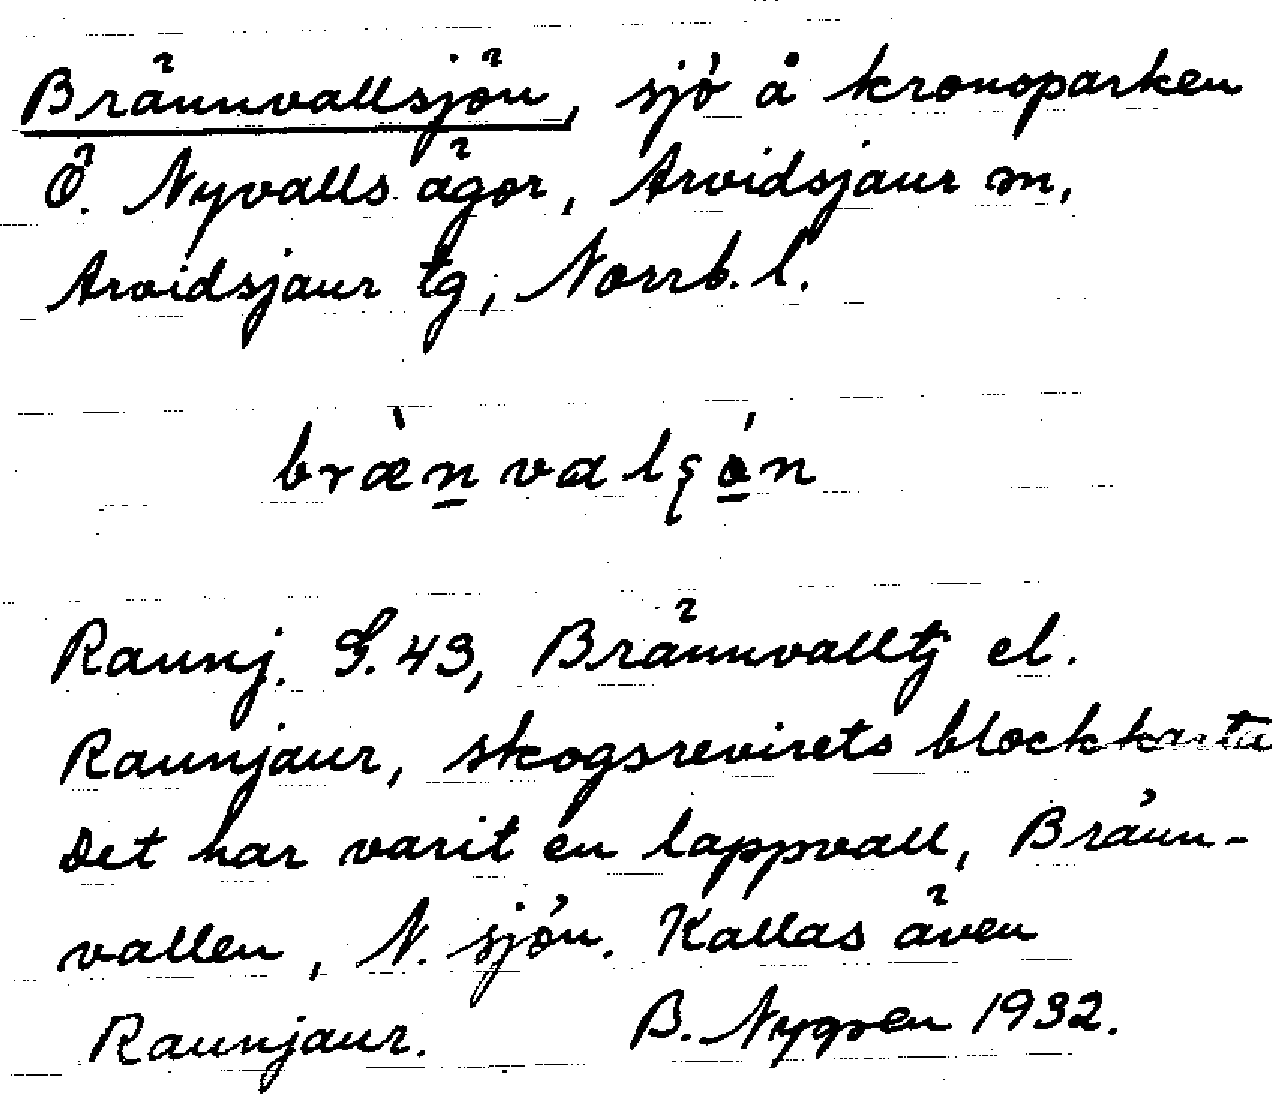 Brännvallsjön, sjö å kronoparken
Ö. Nyvalls ägor, Arvidsjaur sn,
Arvidsjaur tg, Norrb. l.
Raunj. S. 43, Brännvalltj el.
Raunjaur, skogsrevirets blockkarta
Det har varit en lappvall, Bränn-
vallen, N. sjön. Kallas även
Raunjaur. B. Nygren 1932.